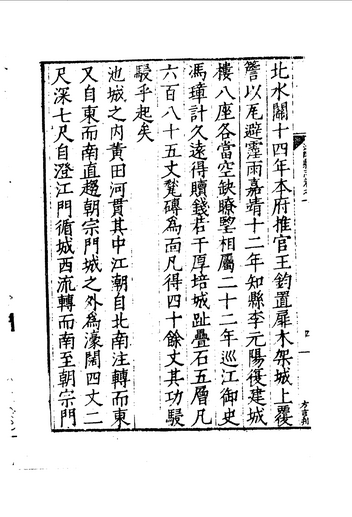 北水關十四年本府推官王鈞置犀木架城上覆
簷以瓦避霪雨嘉靖十二年知縣李元陽復建城
樓八座各當空缺瞭望相屬二十二年巡江御史
馮璋計久遠得贖錢若干厚培城趾疊石五層凡
六百八十五丈甃磚為面凡得四十餘丈其功駸
駸乎起矣
池城之內黃田河貫其中江潮自北南注轉而東
又自東而南直趨朝宗門城之外為濠闊四丈二
尺深七尺自澄江門循城西流轉而南至朝宗門